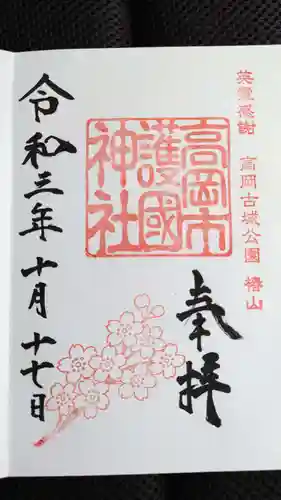 英霊感謝 高岡古城公園 椿山
奉拝
高岡市
護國
神社
令和三年十月十七日